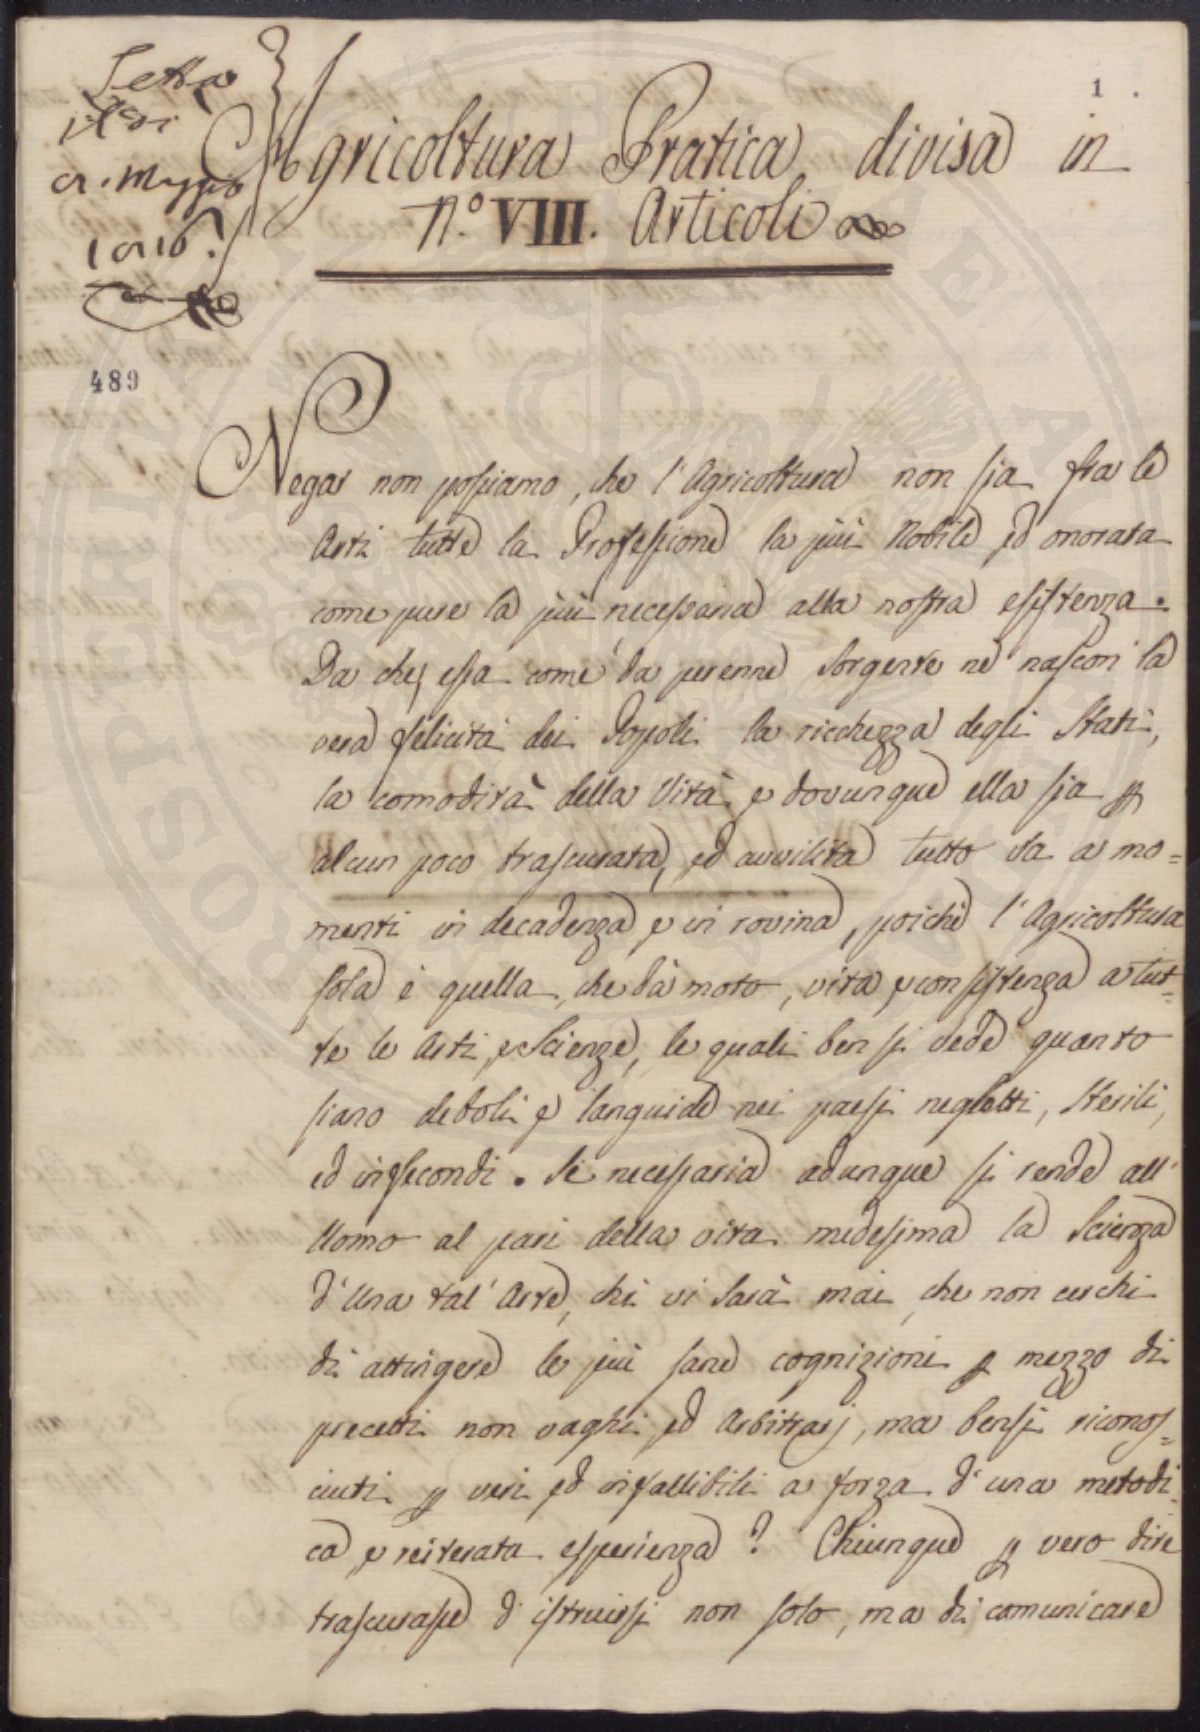 Letta
il dì
1
Agricoltura Pratica divisa in
N.º VIII. Articoli
489
Negar non possiamo, che l'Agricoltura non sia fra le
Arti tutte la Professione la più Nobile ed onorata
come pure la più necessaria alla nostra esistenza.
Da che essa come da perenne Sorgente ne nascon la
vera felicità dei Popoli la ricchezza degli Stati,
la comodità della Vita, e dovunque ella sia p
alcun poco trascurata, ed avvilita tutto va a mo=
menti in decadenza e in rovina, poichè l'Agricoltura
sola è quella, che dà moto, vita e consistenza a tut=
te le Arti, e Scienze, le quali ben si vede quanto
siano deboli e languide nei paesi negletti, Sterili,
ed infecondi. Se necessaria adunque si rende all'
Uomo al pari della vita medesima la Scienza
d'Una tal'Arte, chi vi sarà mai, che non cerchi
di attingere le più sane cognizioni p mezzo di
precetti non vaghi, ed Arbitrarj, ma bensì riconos=
ciuti p veri ed infallibili a forza d'una metodi=
ca, e reiterata esperienza? Chiunque p vero dire
trascurasse d'istruirsi non solo, ma di comunicare